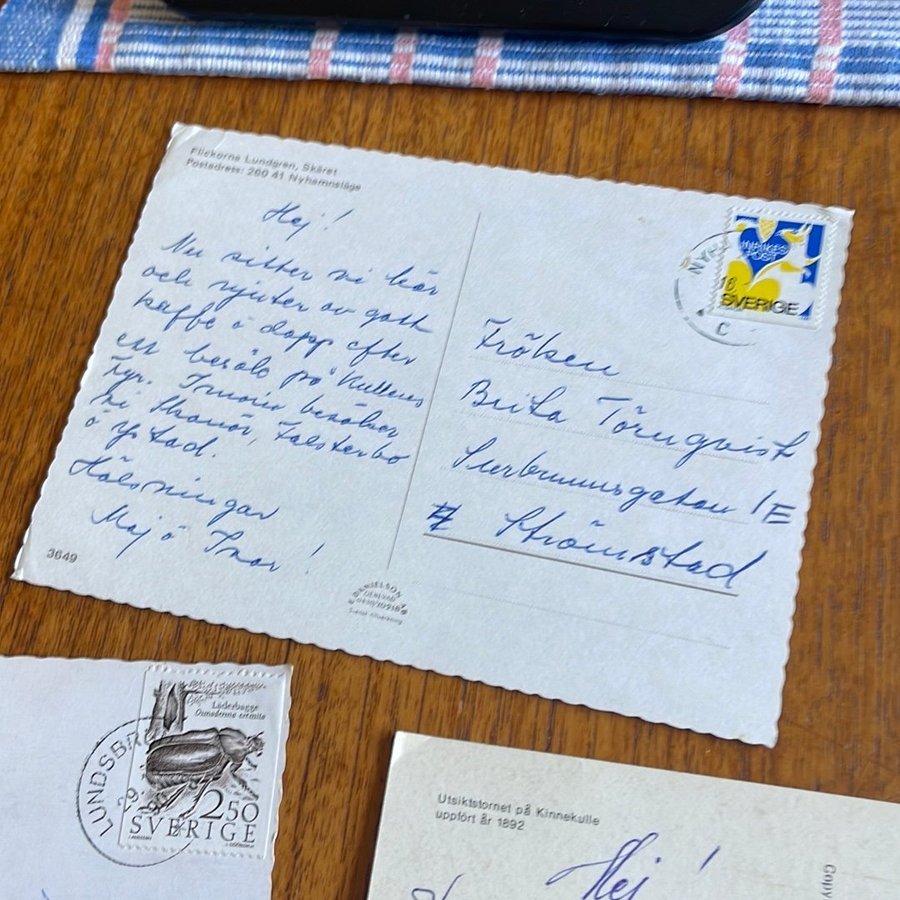 Flickorna Lundgren, Skäret
Postadress: 260 41 Nyhamnsläge
Hej!
Nu sitter vi här
och njuter av gott
kaffe o dopp efter
ett besök på Kullens
fyr. Imorn besöker
vi Skanör, Falsterbo
o Ystad.
Hälsningar
Maj o Ivar!
3649
INRIKES
POST
SVERIGE
C
Fröken
Brita Törnqvist
Surbrunnsgatan 1E
Strömstad
DANIELSON
Läderbagge
Osmoderma eremita
2 50
SVERIGE
LUNDSBR
29
Utsiktstornet på Kinnekulle
uppfört år 1892
Hej!
Copy